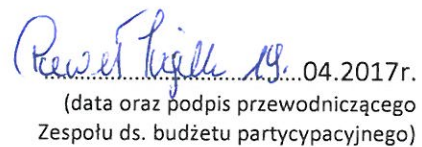 Paweł 19. 04.2017r.
(data oraz podpis przewodniczącego
Zespołu ds. budżetu partycypacyjnego)